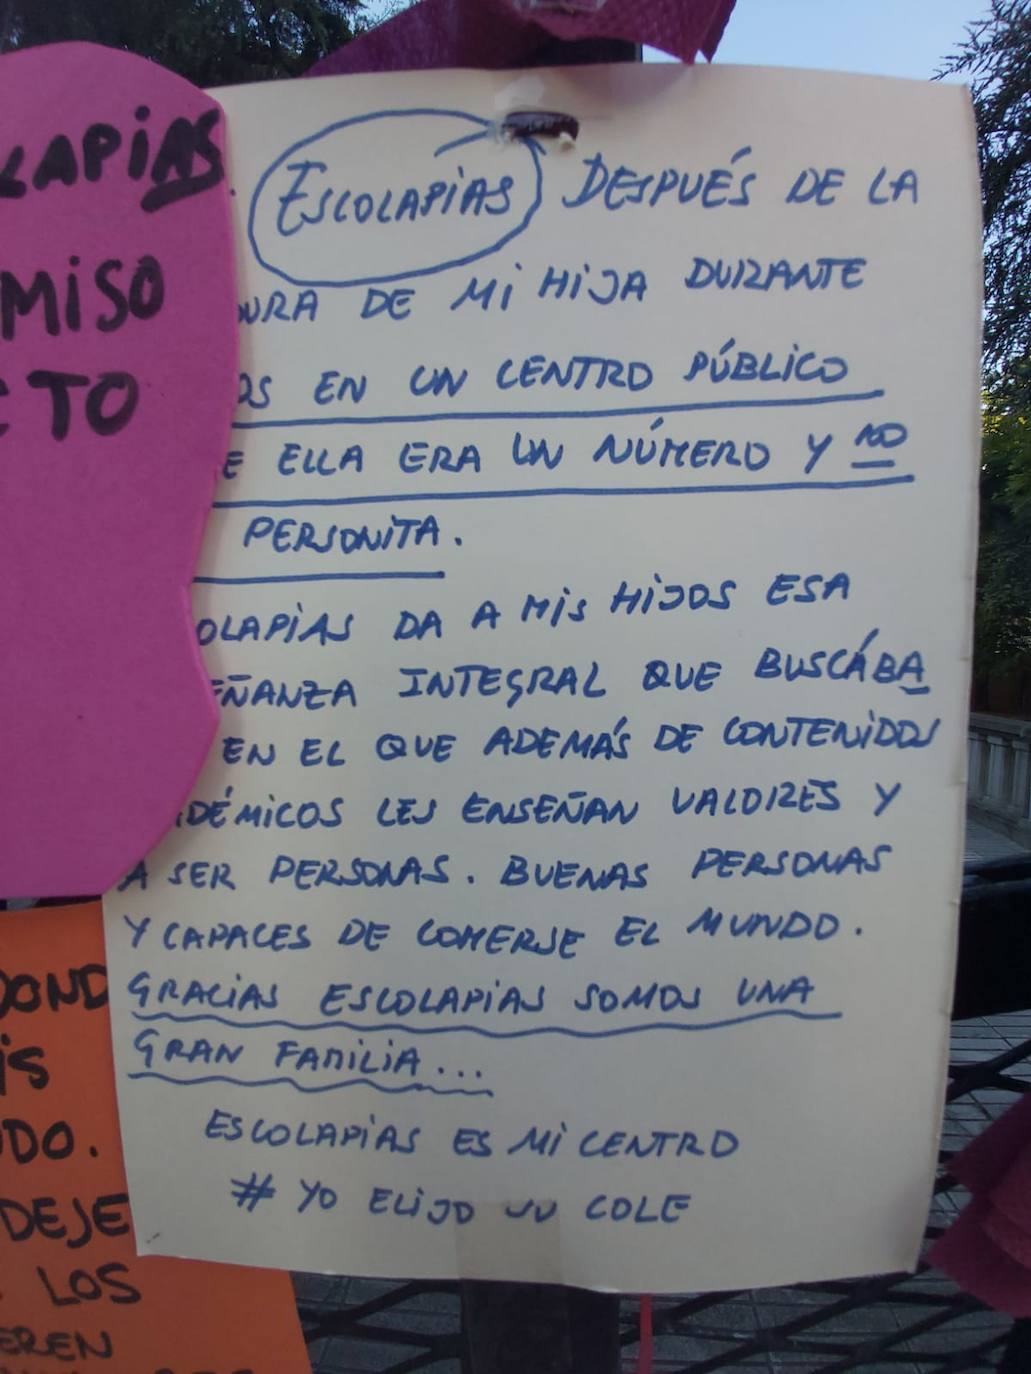 LAPIAS.
MISO
CTO
ESCOLAPIAS DESPUÉS DE LA
DURA DE MI HIJA DURANTE
OS EN UN CENTRO PÚBLICO
E ELLA ERA UN NÚMERO Y NO
PERSONITA.
OLAPIAS DA A MIS HIJOS ESA
EÑANZA INTEGRAL QUE BUSCÁBA
EN EL QUE ADEMÁS DE CONTENIDOS
DÉMICOS LES ENSEÑAN VALORES Y
A SER PERSONAS. BUENAS PERSONAS
Y CAPACES DE COMERSE EL MUNDO.
GRACIAS ESCOLAPIAS SOMOS UNA
GRAN FAMILIA...
ESCOLAPIAS ES MI CENTRO
# YO ELIJO SU COLE
DOND
IS
UDO.
DEJE
LOS
EREN